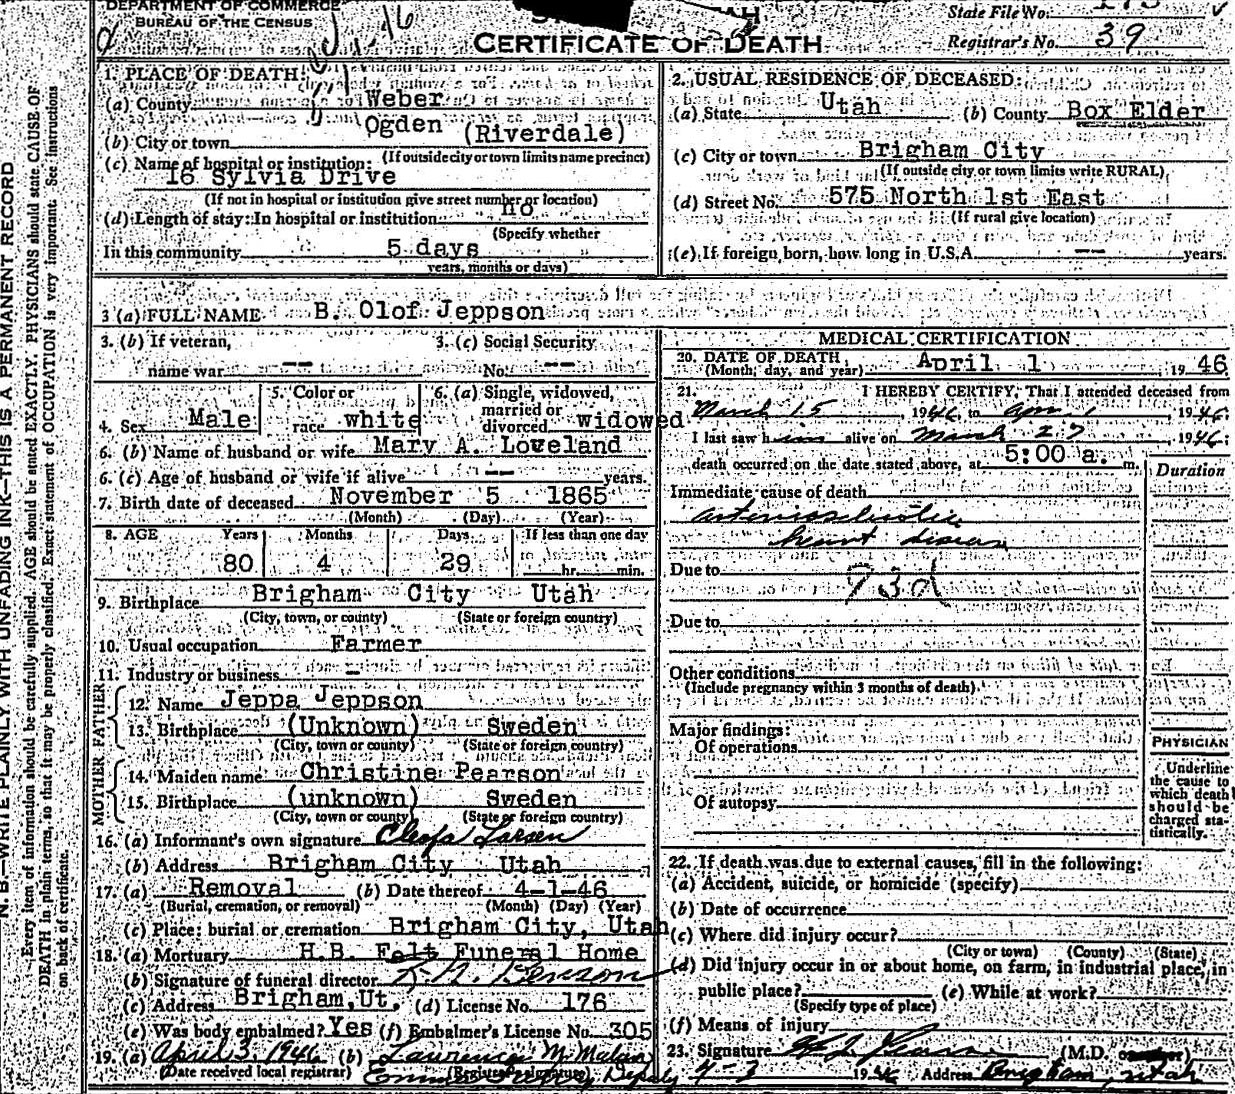 DEPARTMENT OF COMMERCE
BUREAU OF THE CENSUS
CERTIFICATE OF DEATH
State File No.
Registrar's No. 39
N. B.—WRITE PLAINLY WITH UNFADING INK—THIS IS A PERMANENT RECORD
Every item of information should be carefully supplied. AGE should be stated EXACTLY. PHYSICIANS should state CAUSE OF
DEATH in plain terms, so that it may be properly classified. Exact statement of OCCUPATION is very important. See instructions
on back of certificate.
1. PLACE OF DEATH:
(a) County Weber
Ogden (Riverdale)
(b) City or town
(If outside city or town limits name precinct)
(c) Name of hospital or institution:
16 Sylvia Drive
(If not in hospital or institution give street number or location)
(d) Length of stay: In hospital or institution no
(Specify whether
In this community 5 days
years, months or days)
2. USUAL RESIDENCE OF DECEASED:
(a) State Utah (b) County Box Elder
(c) City or town Brigham City
(If outside city or town limits write RURAL)
(d) Street No. 575 North 1st East
(If rural give location)
(e) If foreign born, how long in U.S.A. -- years.
3 (a) FULL NAME B. Olof Jeppson
3. (b) If veteran, 3. (c) Social Security
name war -- No. --
4. Sex Male 5. Color or race white 6. (a) Single, widowed, married or divorced widowed
6. (b) Name of husband or wife Mary A. Loveland
6. (c) Age of husband or wife if alive -- years.
7. Birth date of deceased November 5 1865
(Month) (Day) (Year)
8. AGE Years Months Days If less than one day
80 4 29 hr. min.
9. Birthplace Brigham City Utah
(City, town, or county) (State or foreign country)
10. Usual occupation Farmer
11. Industry or business -
FATHER
12. Name Jeppa Jeppson
13. Birthplace (Unknown) Sweden
(City, town or county) (State or foreign country)
MOTHER
14. Maiden name Christine Pearson
15. Birthplace (unknown) Sweden
(City, town or county) (State or foreign country)
16. (a) Informant's own signature Cleofa Larsen
(b) Address Brigham City Utah
17. (a) Removal (b) Date thereof 4-1-46
(Burial, cremation, or removal) (Month) (Day) (Year)
(c) Place: burial or cremation Brigham City, Utah
18. (a) Mortuary H.B. Felt Funeral Home
(b) Signature of funeral director Benson
(c) Address Brigham, Ut. (d) License No. 176
(e) Was body embalmed? Yes (f) Embalmer's License No. 305
19. (a) April 3, 1946 (b) Lawrence M. Malan
(Date received local registrar) (Registrar's signature)
Deputy
MEDICAL CERTIFICATION
20. DATE OF DEATH April 1 1946
(Month, day, and year)
21. I HEREBY CERTIFY, That I attended deceased from
March 15 1946, to Apr. 1 1946;
I last saw him alive on March 27, 1946;
death occurred on the date stated above, at 5:00 a. m.
Duration
Immediate cause of death
arteriosclerotic
heart disease
Due to 93d
Due to
Other conditions
(Include pregnancy within 3 months of death)
Major findings:
Of operations
Of autopsy
PHYSICIAN
Underline
the cause to
which death
should be
charged sta-
tistically.
22. If death was due to external causes, fill in the following:
(a) Accident, suicide, or homicide (specify)
(b) Date of occurrence
(c) Where did injury occur?
(City or town) (County) (State)
(d) Did injury occur in or about home, on farm, in industrial place, in
public place? (e) While at work?
(Specify type of place)
(f) Means of injury
23. Signature (M.D. or other)
4-3 1946 Address Brigham, Utah